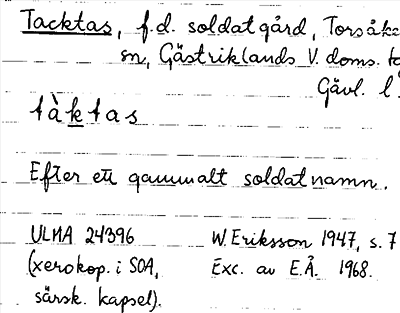 Tacktas, f.d. soldatgård, Torsåke
sn, Gästriklands V. doms.
Gävl. l
tàktas
Efter ett gammalt soldatnamn.
ULMA 24396
(xerokop. i SOA,
särsk. kapsel).
W. Eriksson 1947, s. 7
Exc. av E.Å. 1968.